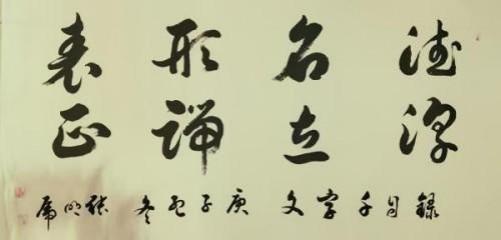 德建
名立
形端
表正
録自千字文 庚子孟冬 張明